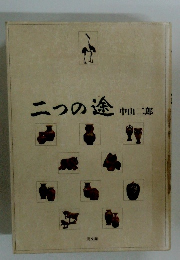 二つの途 中山二郎